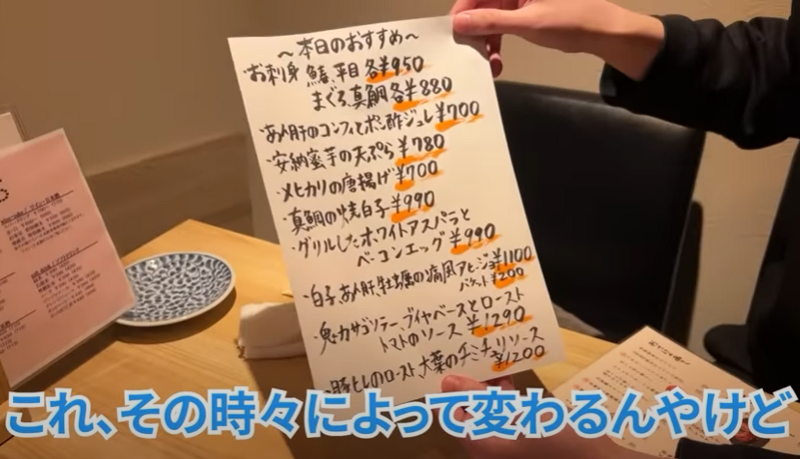 ～本日のおすすめ～
・お刺身 鰆、平目 各¥950
まぐろ、真鯛 各¥880
・あん肝のコンフィとポン酢ジュレ ¥700
・安納蜜芋の天ぷら ¥780
・メヒカリの唐揚げ ¥700
・真鯛の焼白子 ¥990
・グリルしたホワイトアスパラと
ベーコンエッグ ¥990
・白子、あん肝、牡蠣の痛風アヒージョ ¥1100
バケット ¥200
・鬼カサゴソテー、ブイヤベースとロースト
トマトのソース ¥1290
・豚ヒレのロースト、大葉のチミチュリソース
¥1200
これ、その時々によって変わるんやけど